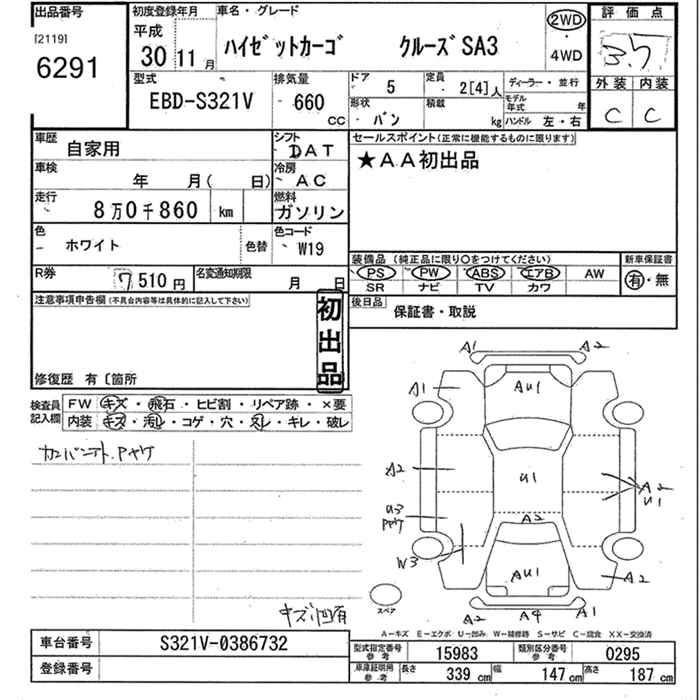 出品番号
[2119]
6291
初度登録年月
平成
30 11月
車名・グレード
ハイゼットカーゴ クルーズSA3
2WD
・
4WD
評価点
3.5
外装 内装
C C
型式
EBD-S321V
排気量
660
CC
ドア 5
定員 2[4]人
ディーラー・並行
形状 バン
積載 kg
モデル年式 年
ハンドル 左・右
車歴
自家用
シフト
DAT
車検
年 月( 日)
冷房
AC
走行
8万0千860 km
燃料
ガソリン
色
ホワイト
色替
色コード
W19
R券
7510円
名変通知期限
月 日
セールスポイント(正常に機能するものに限ります)
★AA初出品
装備品(純正品に限り〇をつけてください)
PS PW ABS エアB AW
SR ナビ TV カワ
新車保証書
有・無
後日品
保証書・取説
注意事項申告欄(不具合内容等は具体的に記入して下さい)
初出品
修復歴 有〔箇所
検査員記入欄
FW ・キズ・飛石・ヒビ割・リペア跡・×要
内装・キズ・汚レ・コゲ・穴・スレ・キレ・破レ
キズ凹有
A1 A2
A1 AU1
A2 U1 A2
U1
U3
A2
W3
AU1 A2
スペア
A2 A4 A1
A-キズ E-エクボ U-凹み W-補修跡 S-サビ C-腐食 XX-交換済
車台番号
S321V-0386732
登録番号
型式指定番号参考 15983
類別区分番号参考 0295
車庫証明用参考
長さ 339cm
幅 147cm
高さ 187cm